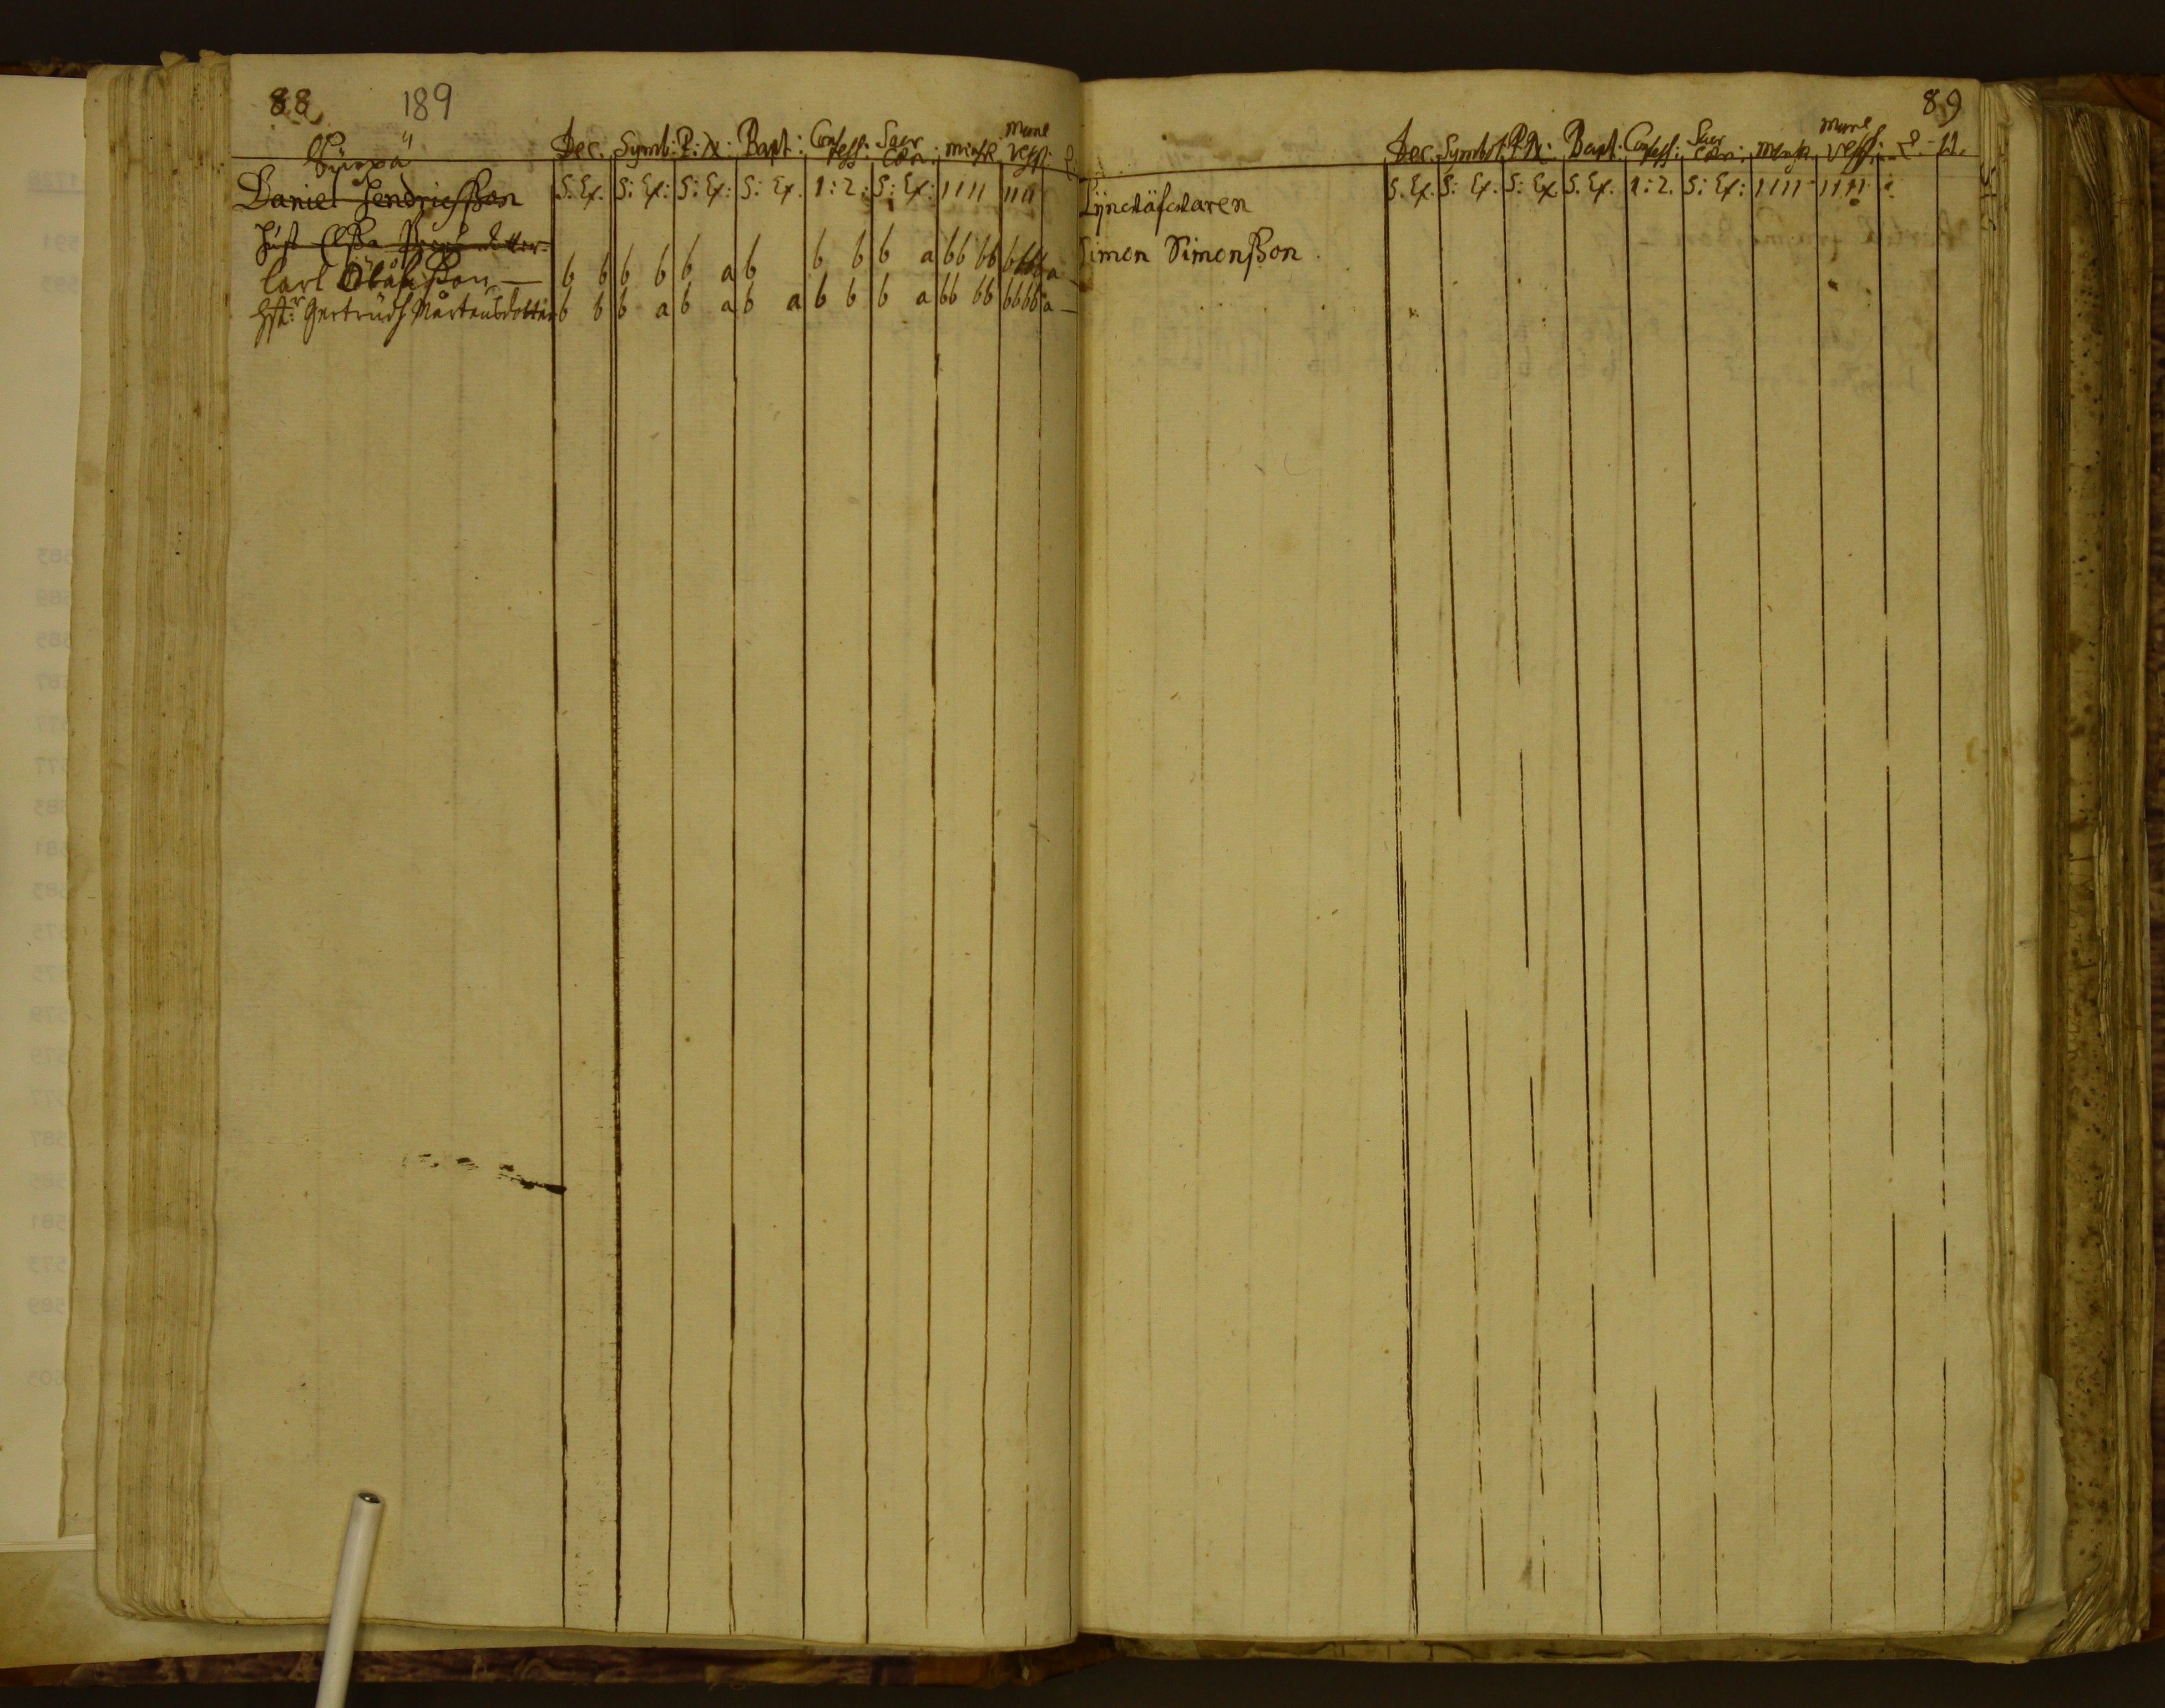 88 189
Dec. Symb: P: N: Bapt: Confess: Sacr Cœn: mensæ mane vesp:
Daniel Hendricsson S. Ex. S: Ex: S: Ex: S: Ex. 1: 2: S: Ex: 1111 1111
Hust Elssa
Carl Olåfsson — b b b b b a b b b b a bb bb bbbb a
Hstr: Gertrudh Mårtensdotter b b b a b a b a b b b a bb bb bbbb a —
89
Dec. Symbol: P. N: Bapt: Confess: Sacr Cœn: mensæ mane vesp:
S. Ex. S: Ex. S: Ex S. Ex. 1: 2. S: Ex: 1111 1111
Simon Simonsson.